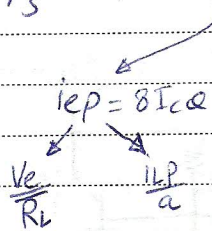 iep = 8IcQ
Ve/RL iLP/a